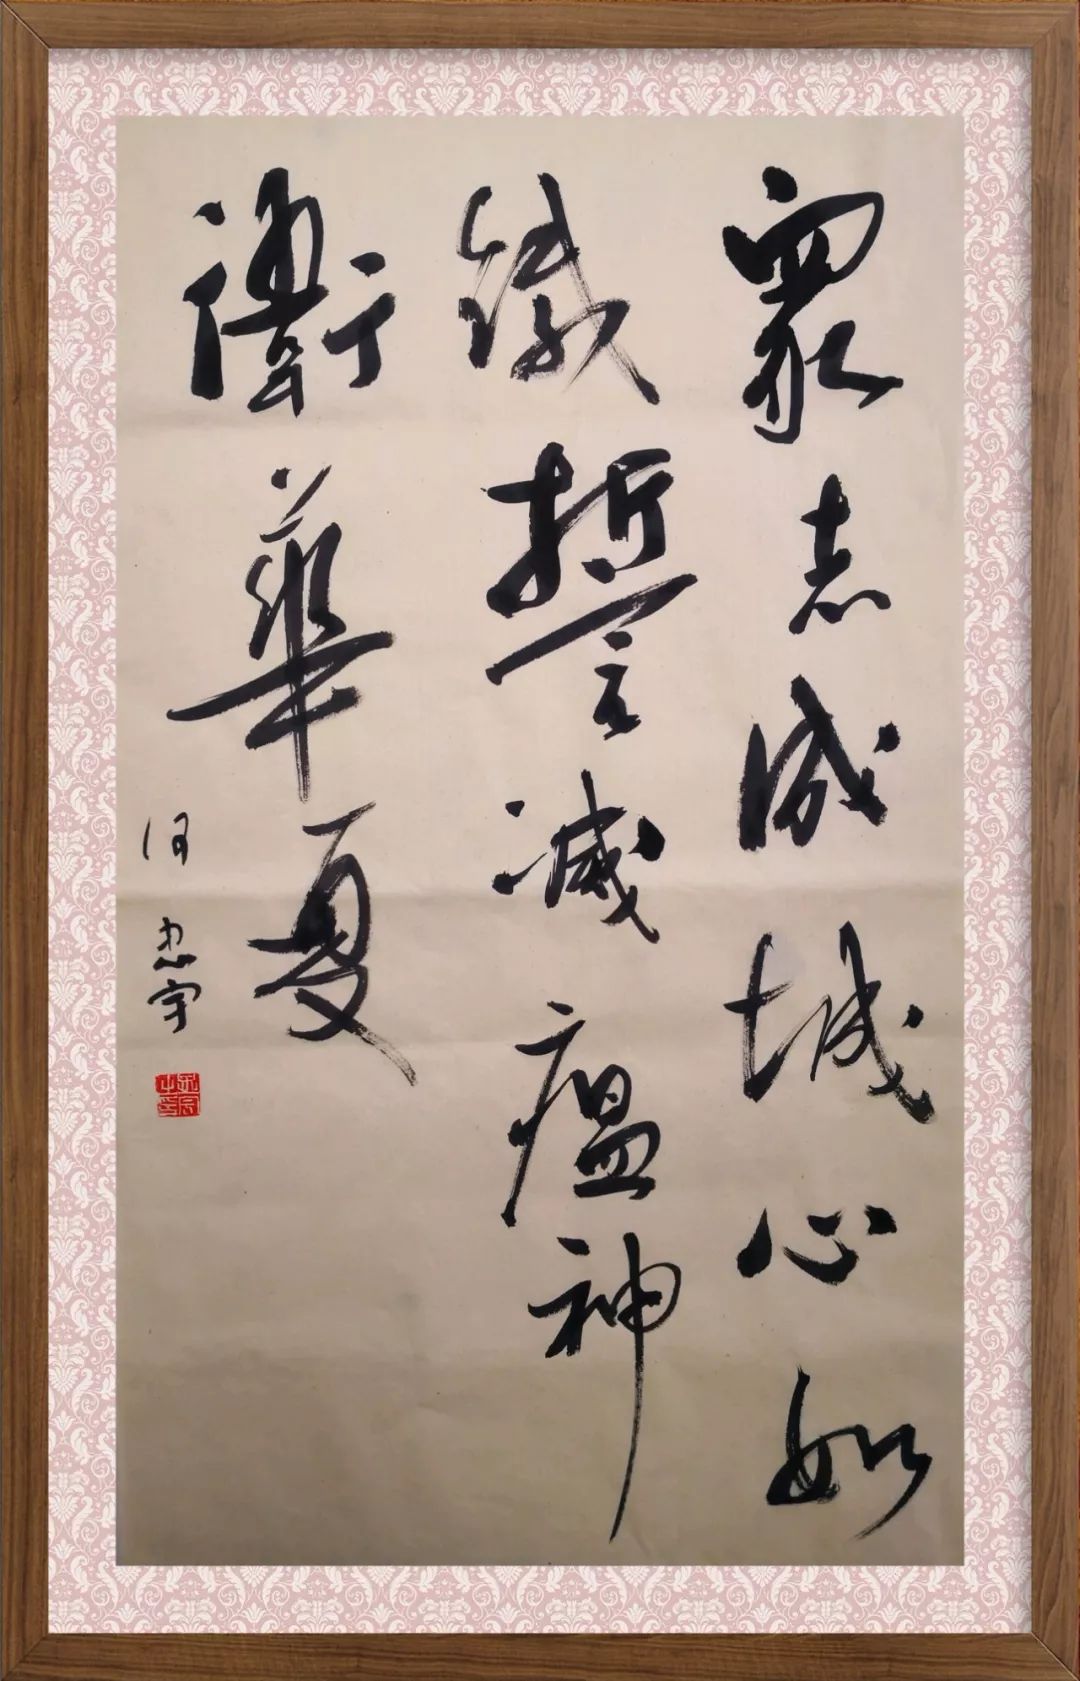 眾志成城心如
鐵誓滅瘟神
衛華夏
何忠宇